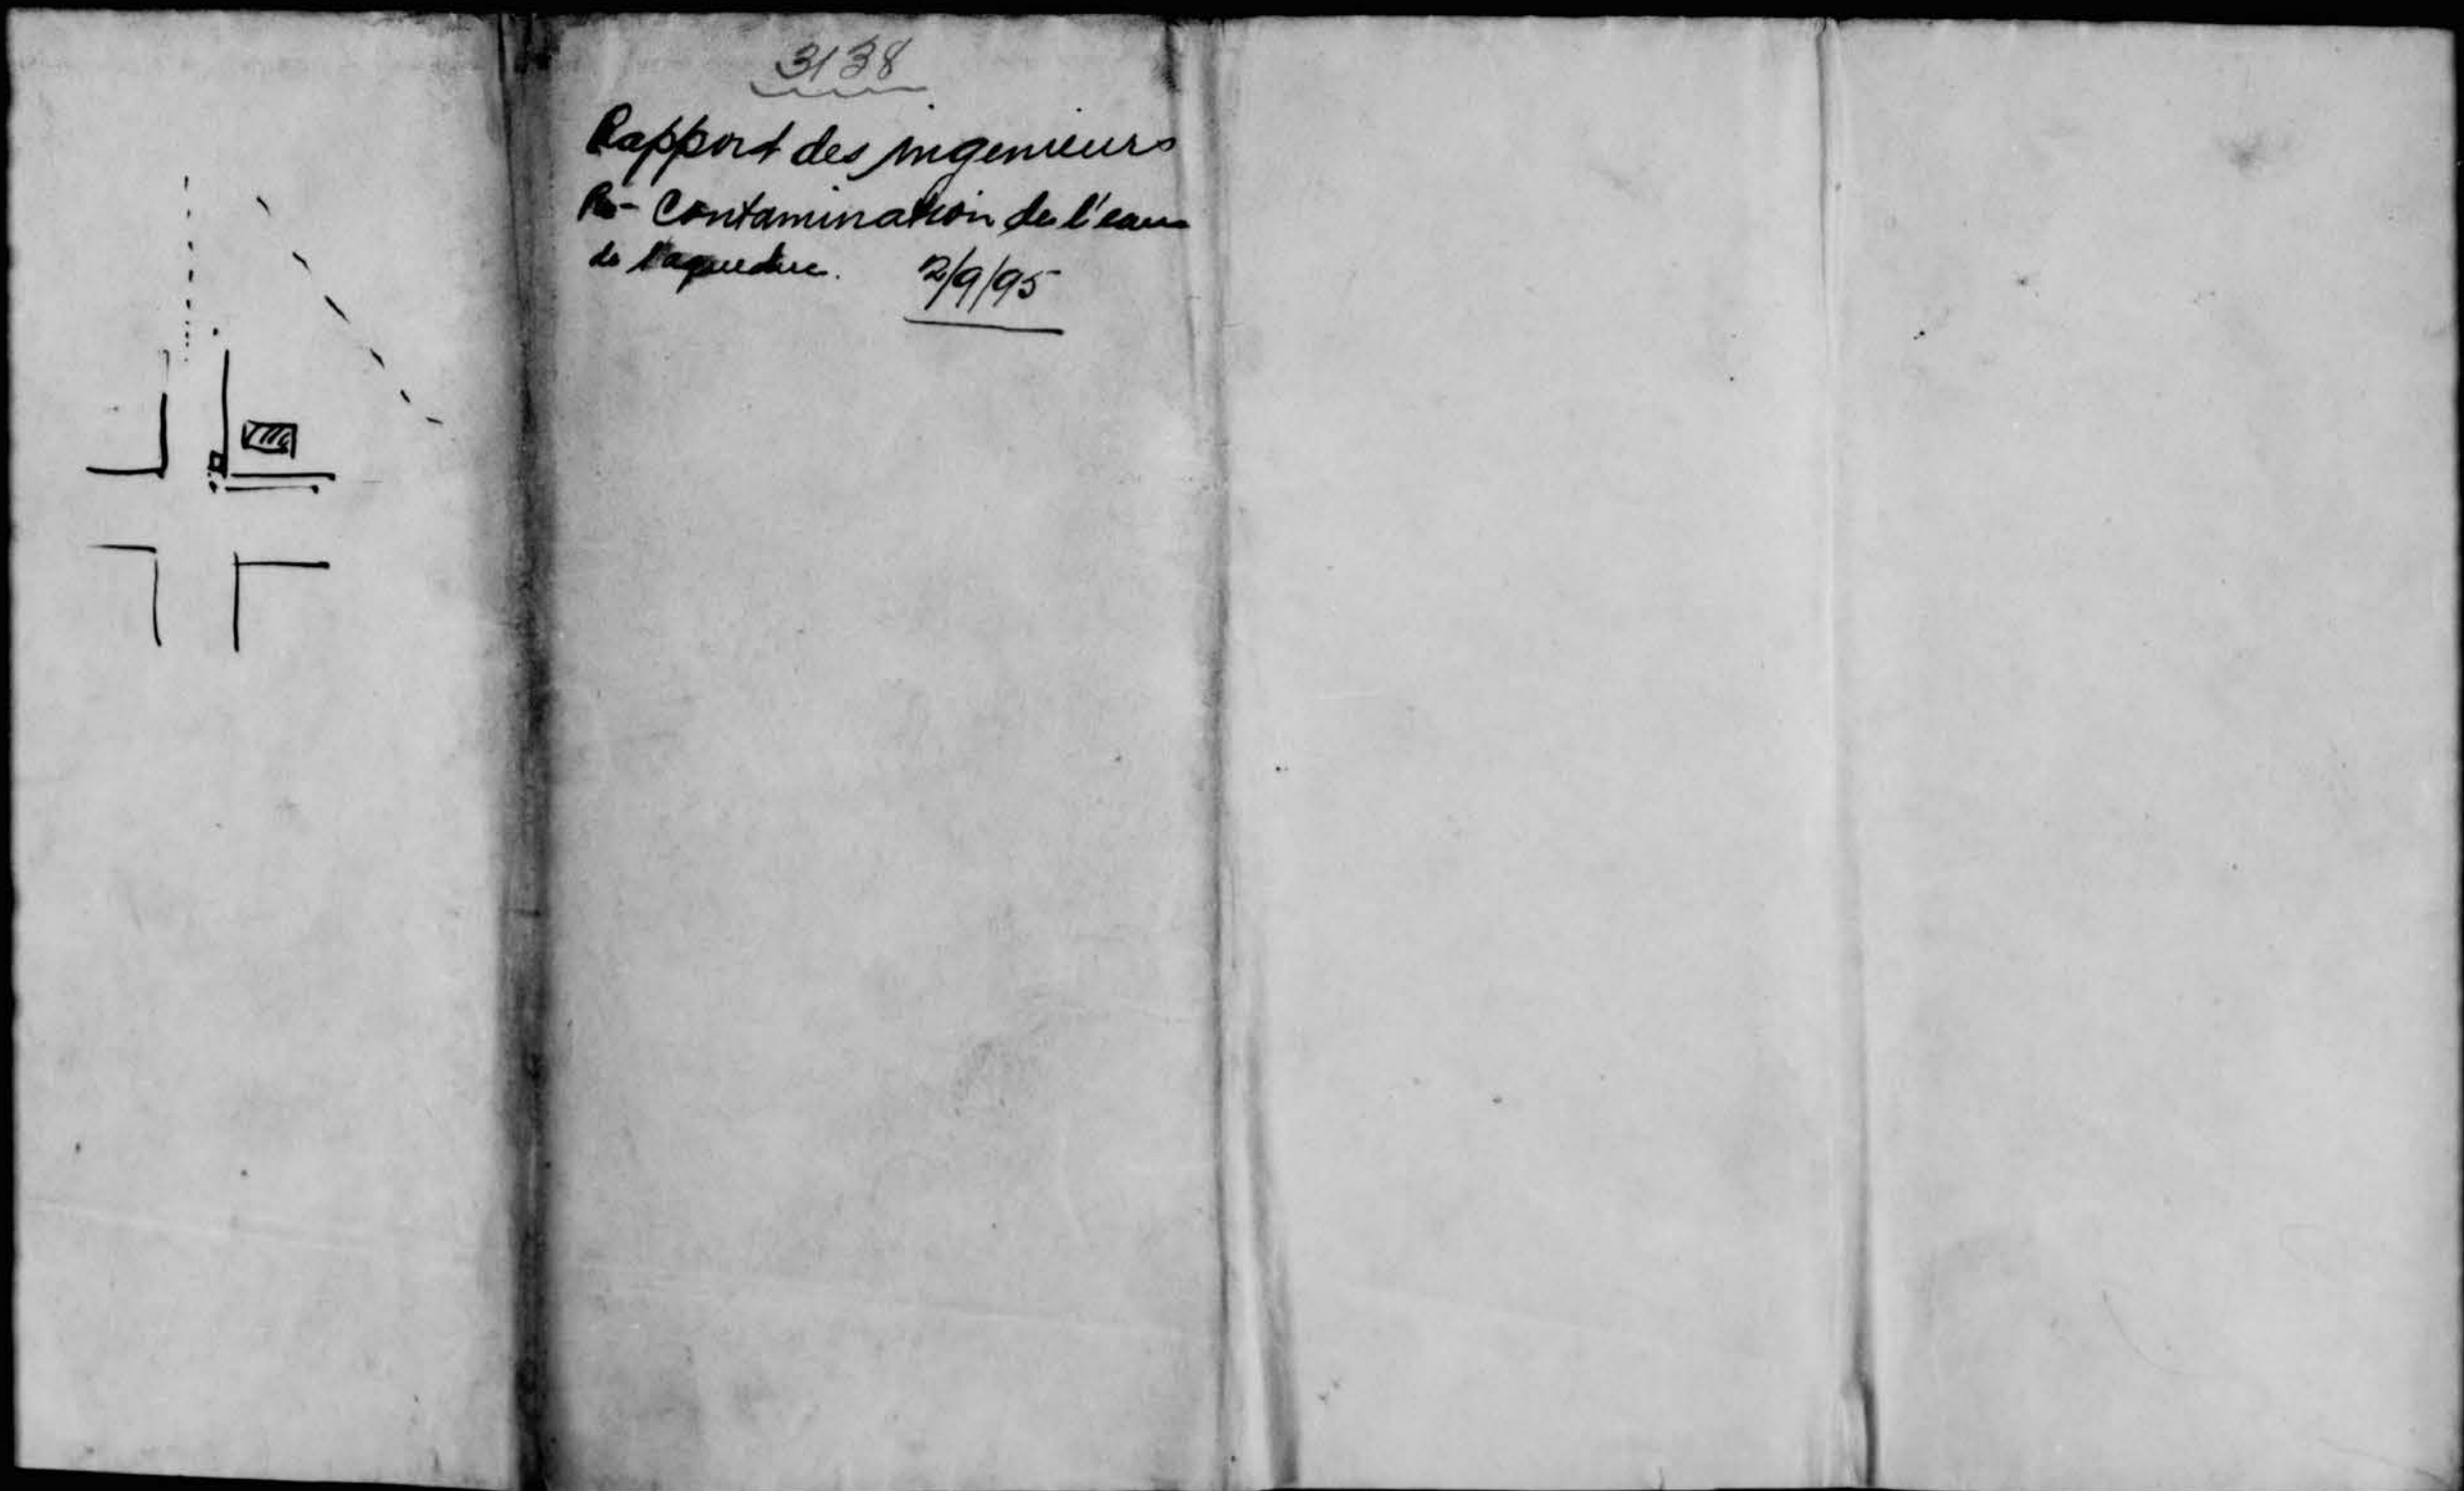 3138
Rapport des ingenieurs
Re- Contamination de l'eau
de l'aqueduc. 2/9/95